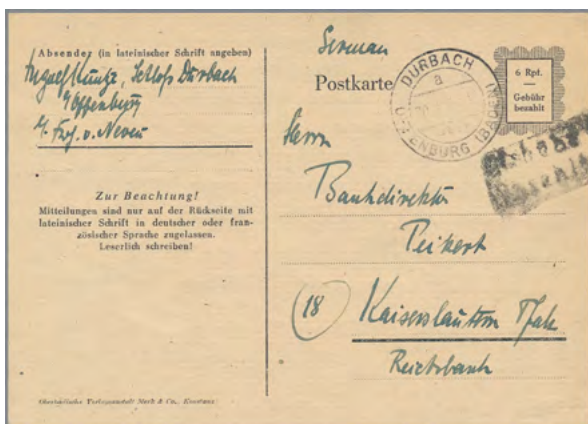 Absender (in lateinischer Schrift angeben)
Schloß Durbach
Offenburg
Zur Beachtung!
Mitteilungen sind nur auf der Rückseite mit
lateinischer Schrift in deutscher oder fran-
zösischer Sprache zugelassen.
Leserlich schreiben!
Oberbadische Verlagsanstalt Merk & Co., Konstanz
German
Postkarte
DURBACH
a
OFFENBURG (BADEN)
6 Rpf.
Gebühr
bezahlt
Herrn
Bankdirektor
Peikert
(18) Kaiserslautern Pfalz
Reichsbank